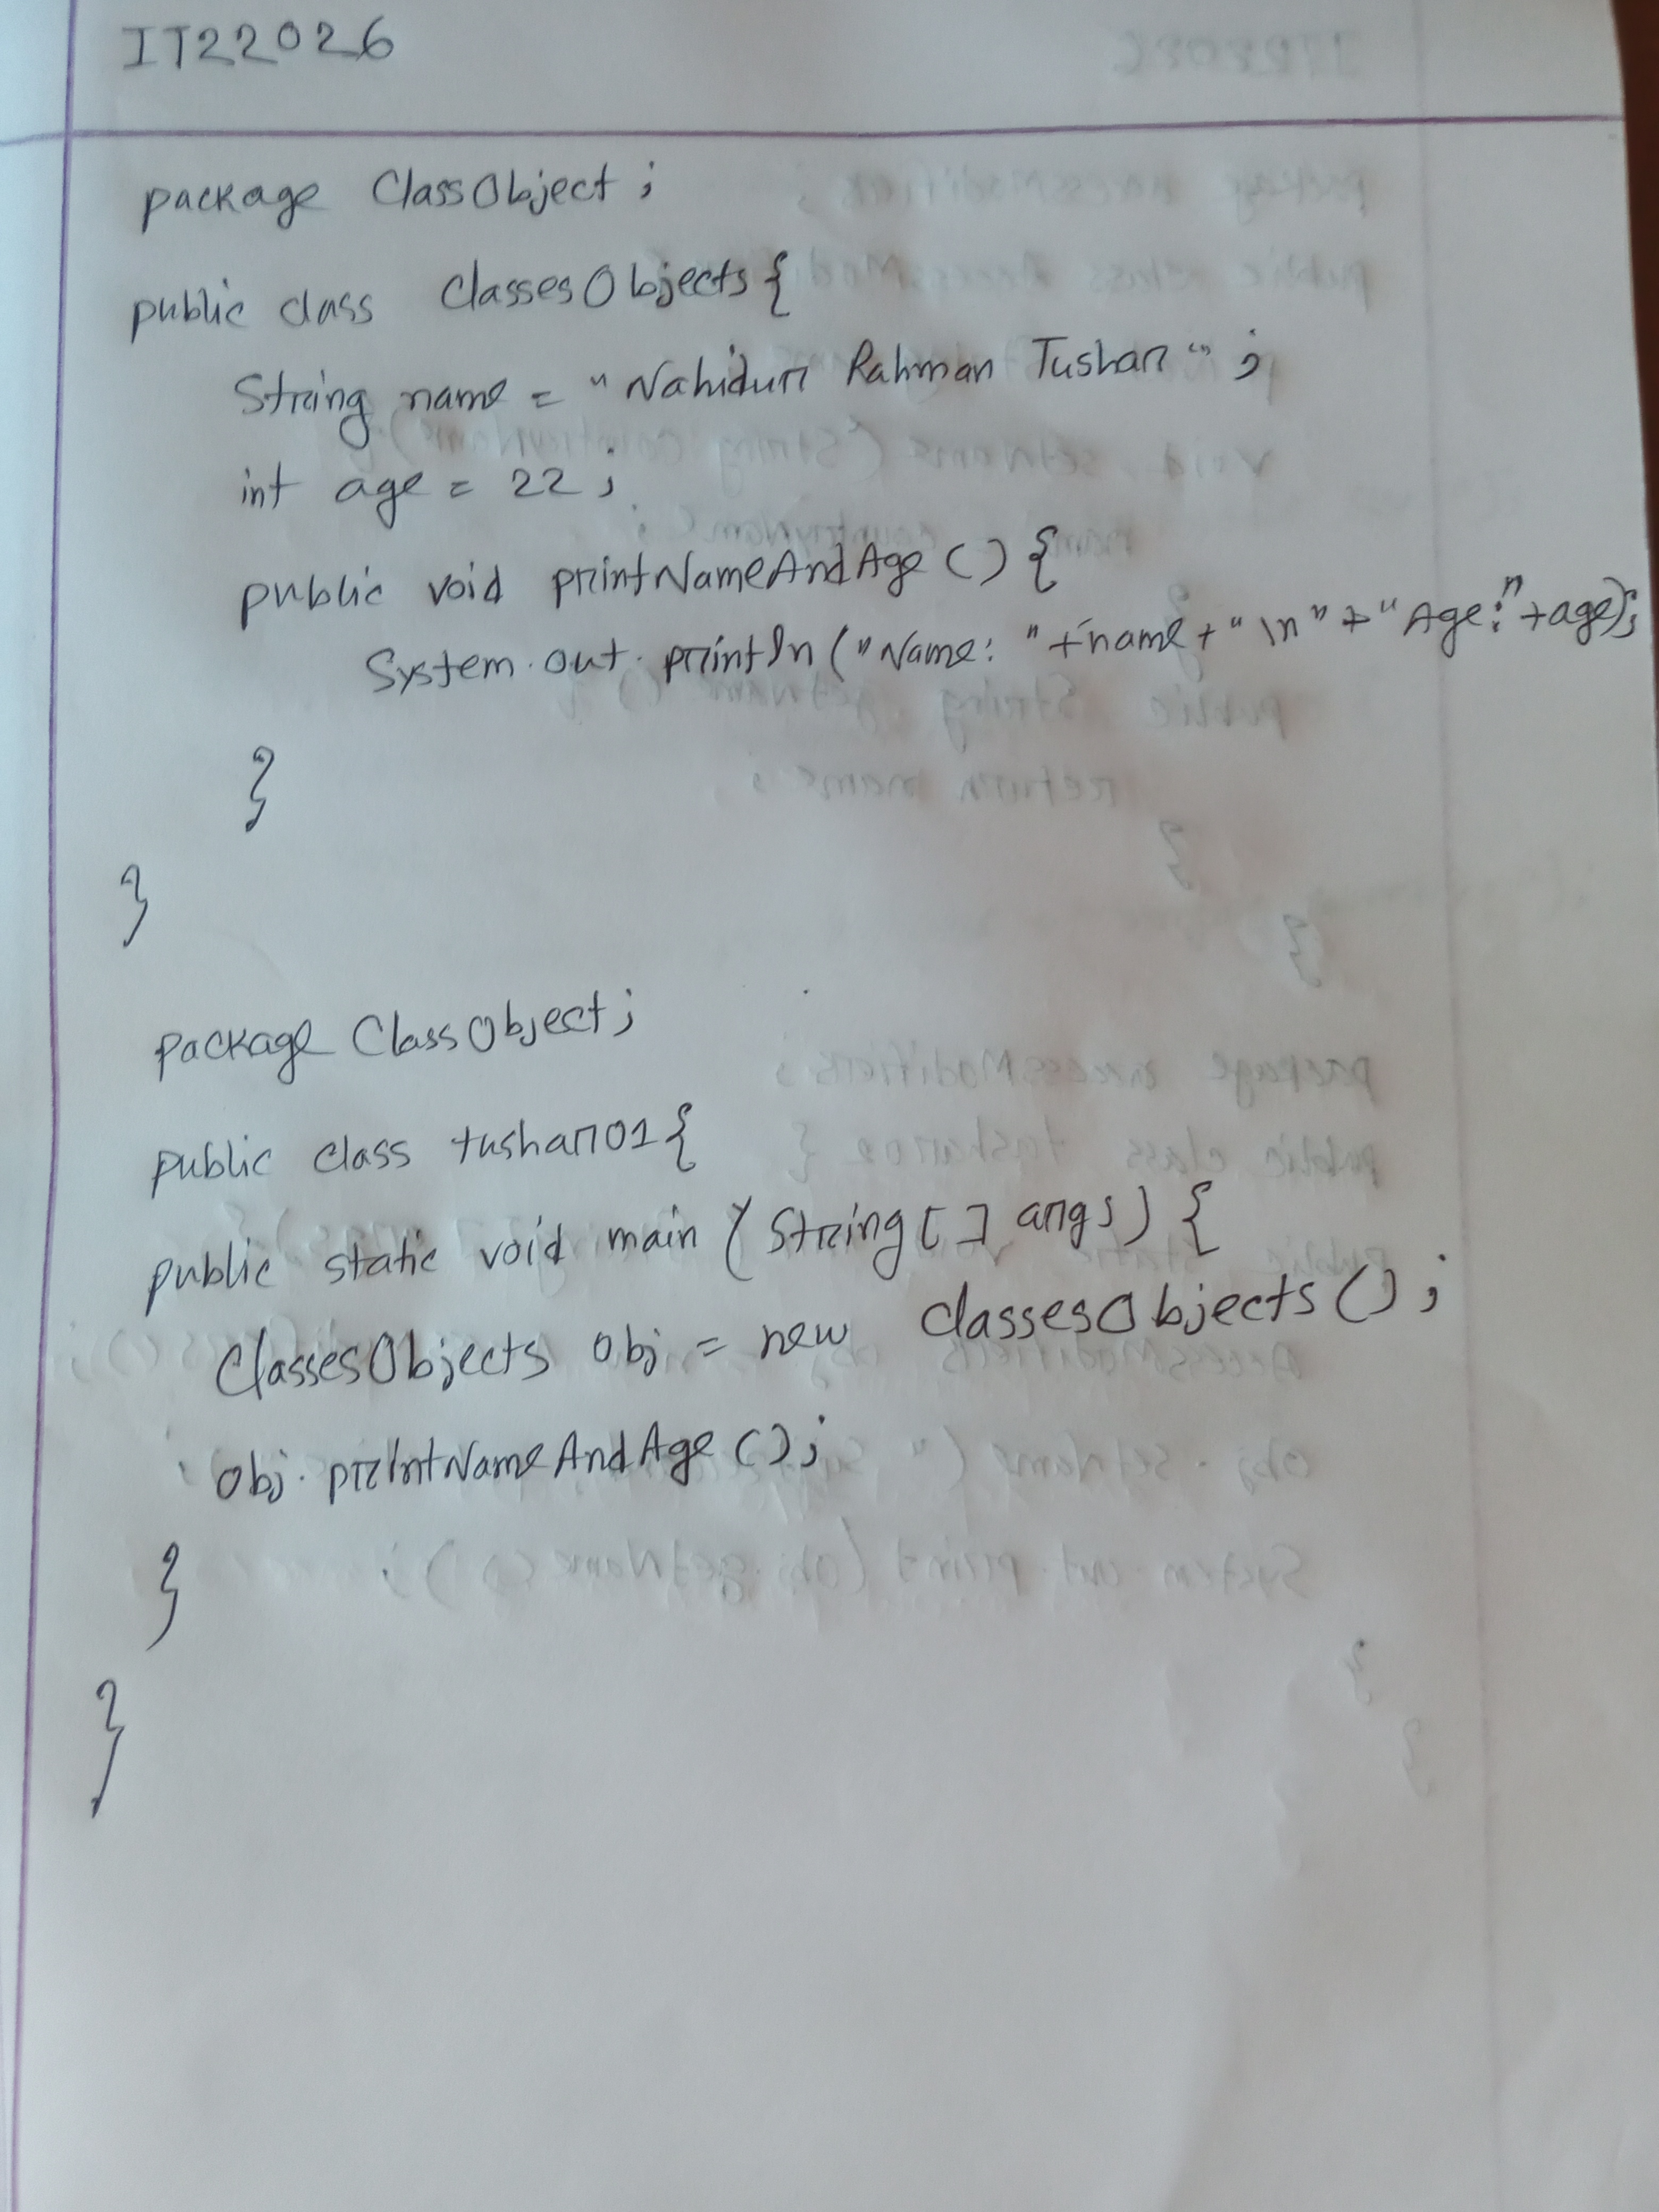 IT22026
package ClassObject;
public class ClassesObjects{
String name = "Nahidur Rahman Tushar";
int age = 22;
public void printNameAndAge(){
System.out.println("Name: "+name+"\n"+"Age:"+age);
}
}
package ClassObject;
public class tushar01{
public static void main(String[] args){
ClassesObjects obj = new ClassesObjects();
obj.printNameAndAge();
}
}